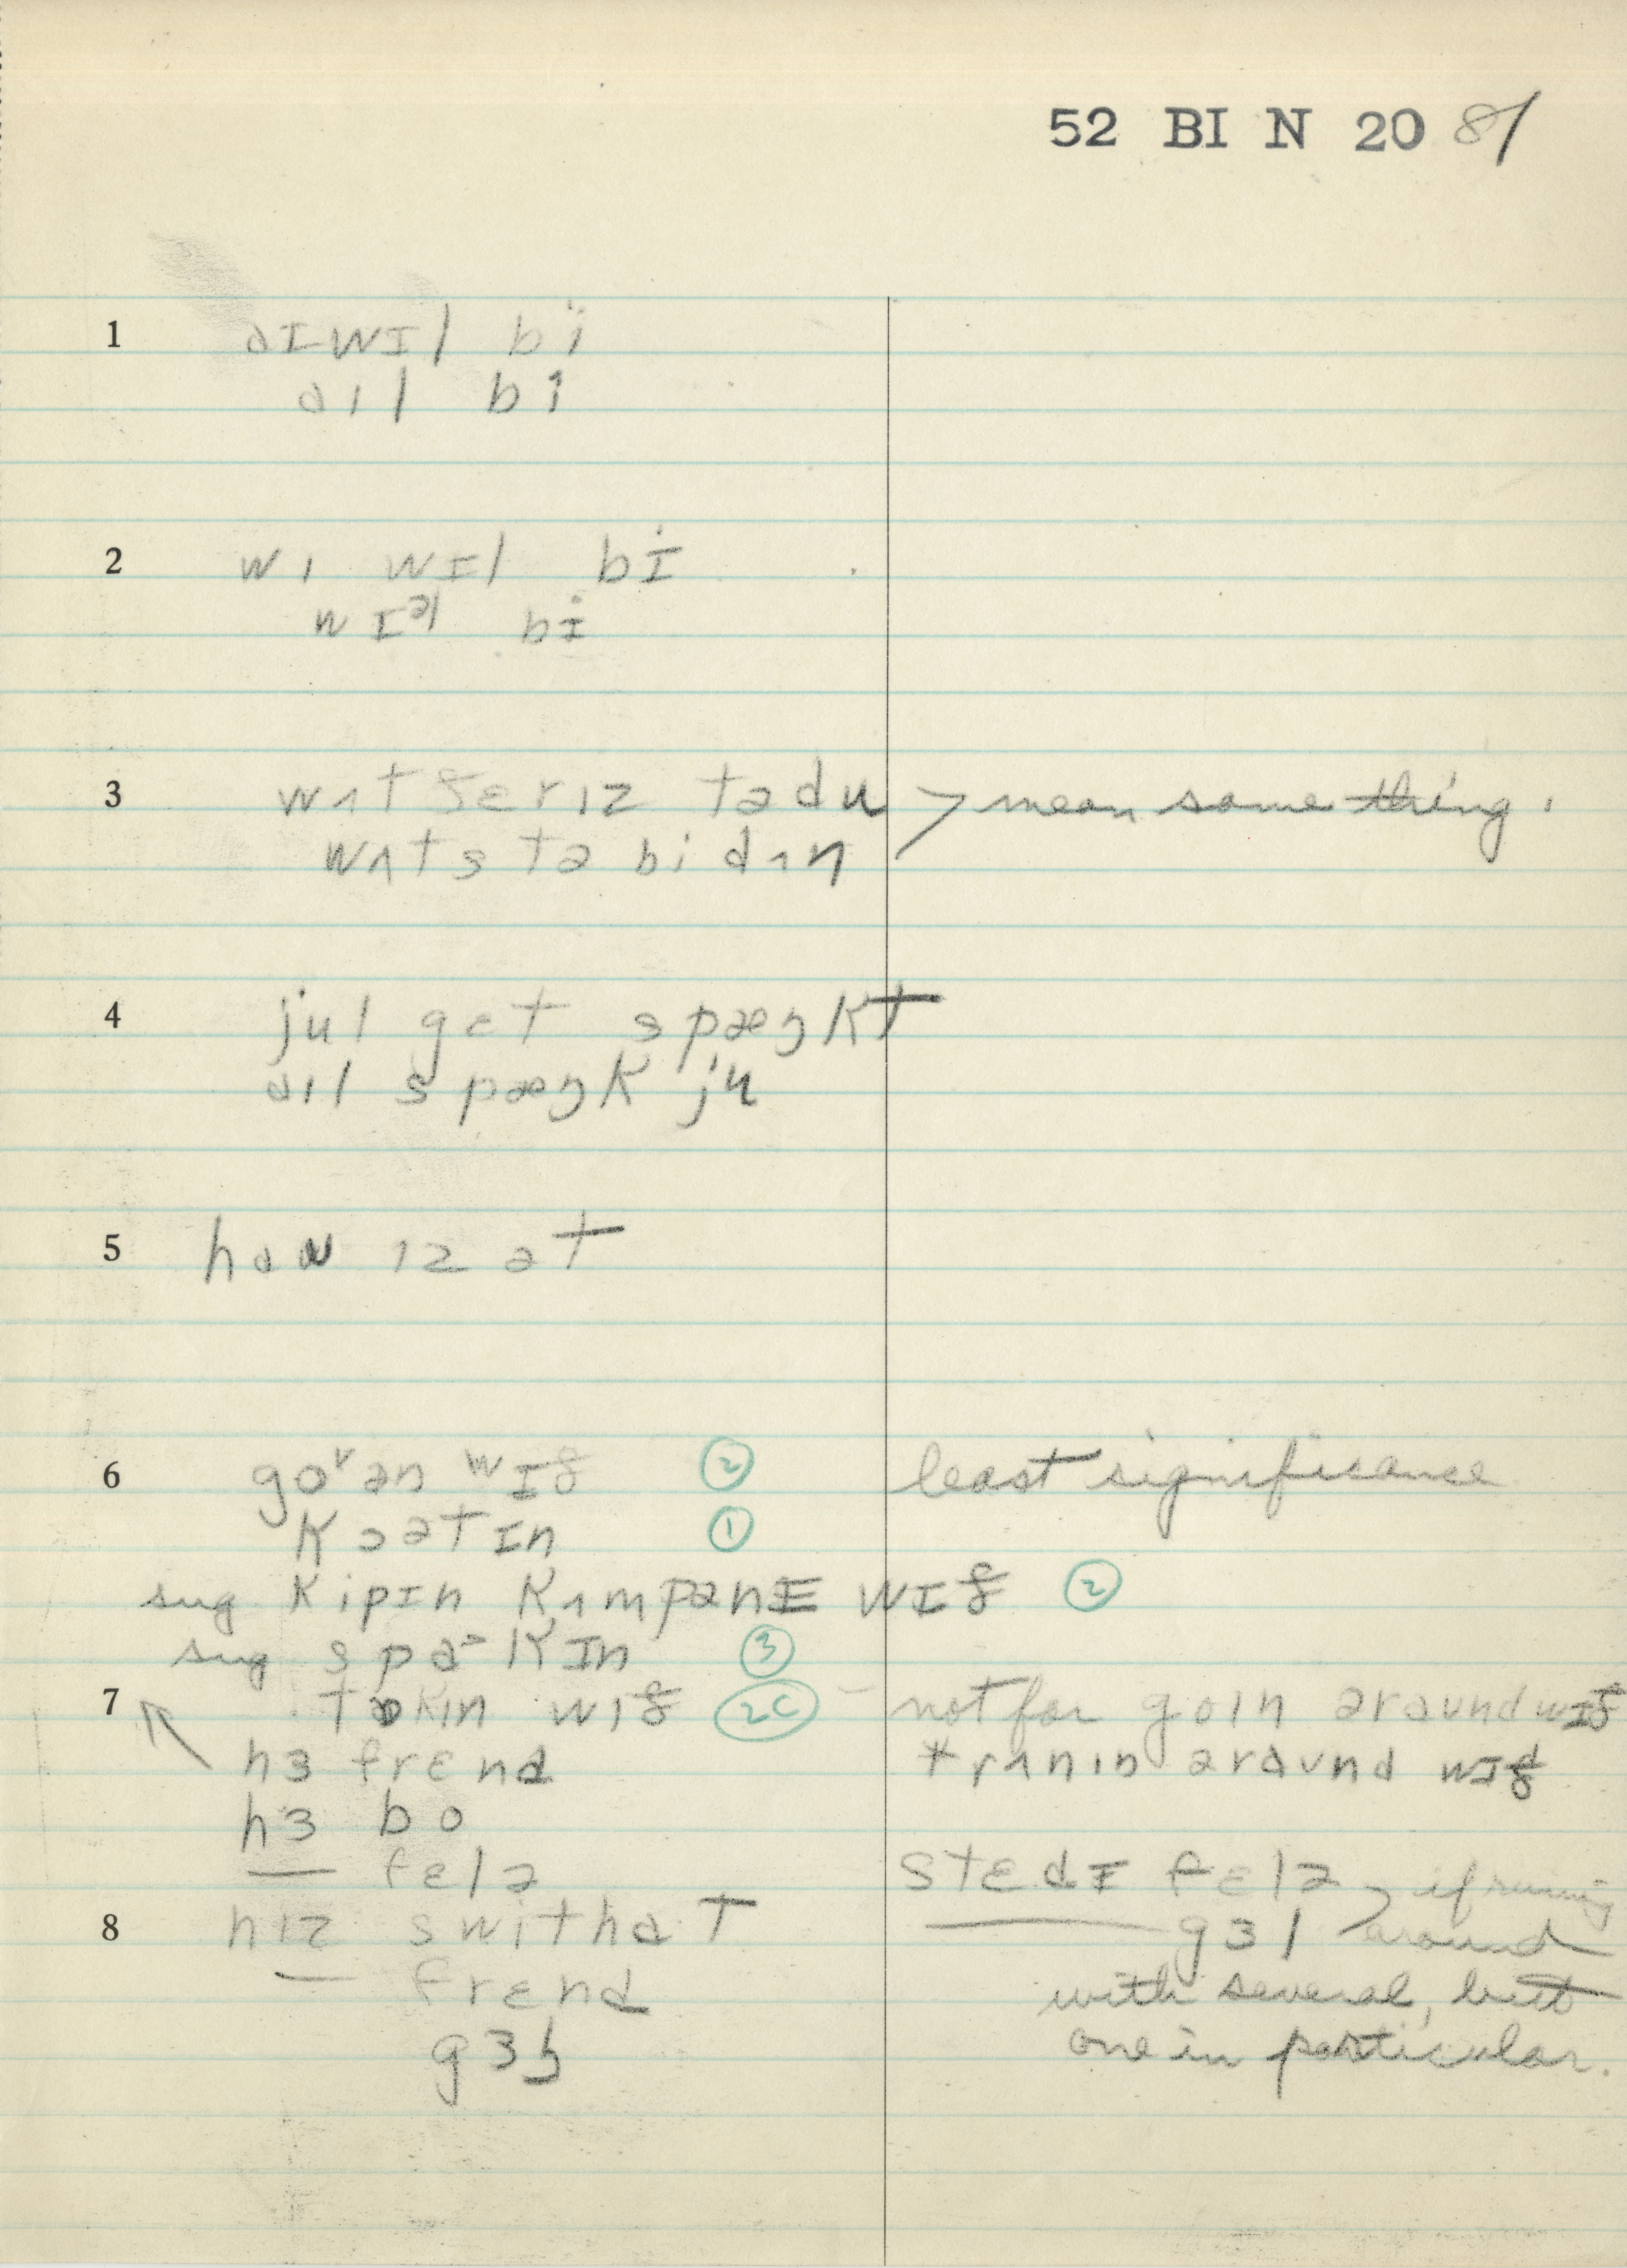 52 BI N 20 81
1 aɪwɪl bi
aɪl bi
2 wi wɪl bɪ
wɪᵊl bɪ
3 wʌt ðɛr ɪz tə du > mean same thing.
wʌts tə bi dʌn
4 jul gɛt spæŋkt
aɪl spæŋk ju
5 haʊ ɪz ət
6 goᵛ ən wɪð ② least significance
kɔətɪn ①
sug kipɪn kʌmpənɪ wɪð ②
sug spaᵊkɪn ③
7 tɔkɪn wɪð 2C – not for goɪn əraund wɪð
* rʌnɪn əraʊnd wɪð
hɜ frɛnd
hɜ bo
— fɛlə
stɛdɪ fɛlə > if running
8 hɪz swithaʳt
—— gɜl around
— frɛnd
with several, but
gɜl
one in particular.